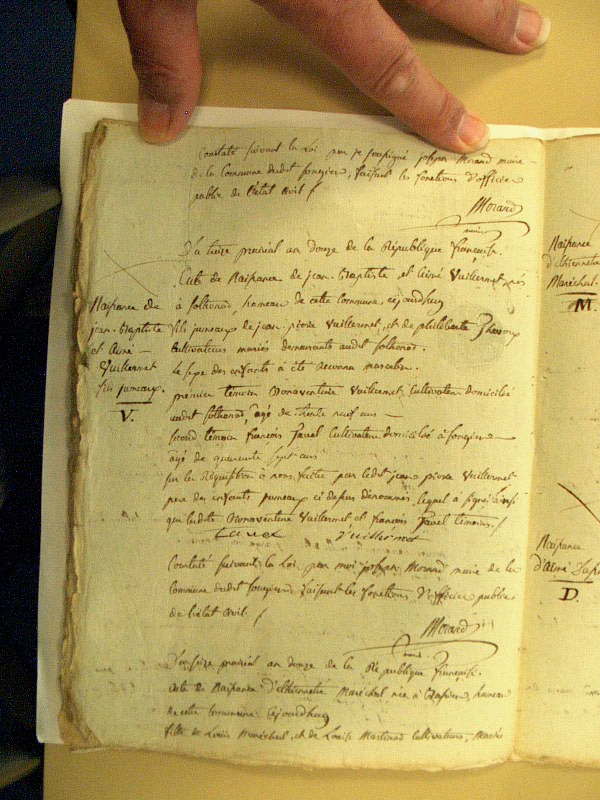 Constaté suivant la Loi par je soussigné joseph Morand maire
de la Commune dudit songieu, faisant les fonctions d'officier
public de l'état civil /
Morand
maire
Du treize prairial an douze de la République française.
Acte de Naissance de jean-Baptiste et aimé Vuillermet nés
à sothonod, hameau de cette commune, cejourdhuy
fils jumeaux de jean-pierre Vuillermet, et de philiberte
Cultivateurs mariés demeurants audit sothonod.
le sexe des enfants a été reconnu masculin.
premier témoin Bonaventure Vuillermet cultivateur domicilié
audit sothonod, agé de trente neuf ans
second témoin françois Javel cultivateur domicilié à songieu
agé de quarante sept ans
sur la Réquisition à nous faitte par ledit jean pierre Vuillermet
pere des enfants jumeaux ci dessus dénommés lequel a signé ainsi
que lesdits Bonaventure Vuillermet et françois Javel témoins /
Vuillermet
Constaté suivant la Loi par moi joseph Morand maire de la
Commune dudit songieu, faisant les fonctions d'officier public
de l'état civil /
Morand
maire
Du seize prairial an douze de la République française.
acte de Naissance d'ethiennette Maréchal née à hameau
de cette commune cejourdhuy
fille de Louis Maréchal, et de Louise Martinod cultivateurs, Mariés
Naissance de
jean-Baptiste
et Aimé
Vuillermet
fils jumeaux.
V.
Naissance
d'ethiennette
Maréchal.
M.
Naissance
d'Aimé
D.